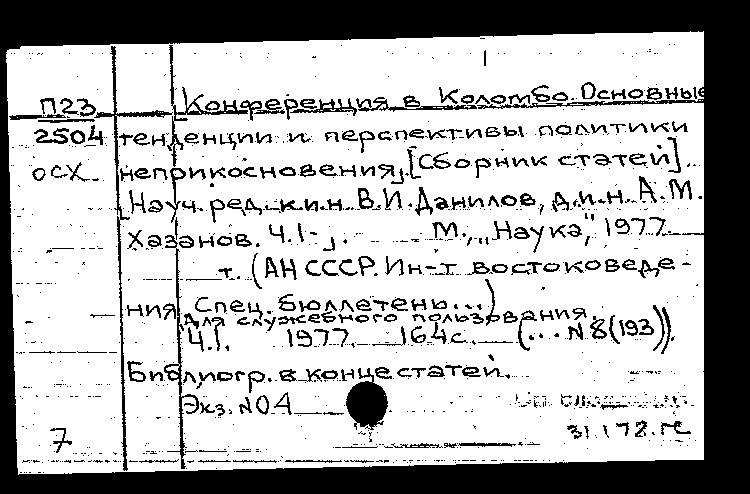 П23 Конференция в Коломбо. Основные
2504 тенденции и перспективы политики
ОСХ неприкосновения. [Сборник статей].
Науч. ред. к.и.н. В.И. Данилов, д.и.н. А.М.
Хазанов. Ч.1- . М., „Наука“, 1977
т. (АН СССР. Ин-т востоковеде-
ния. Спец. бюллетень...)
для служебного пользования.
Ч.I. 1977. 164с. (... N8(193)).
Библиогр. в конце статей.
Экз. №04
7